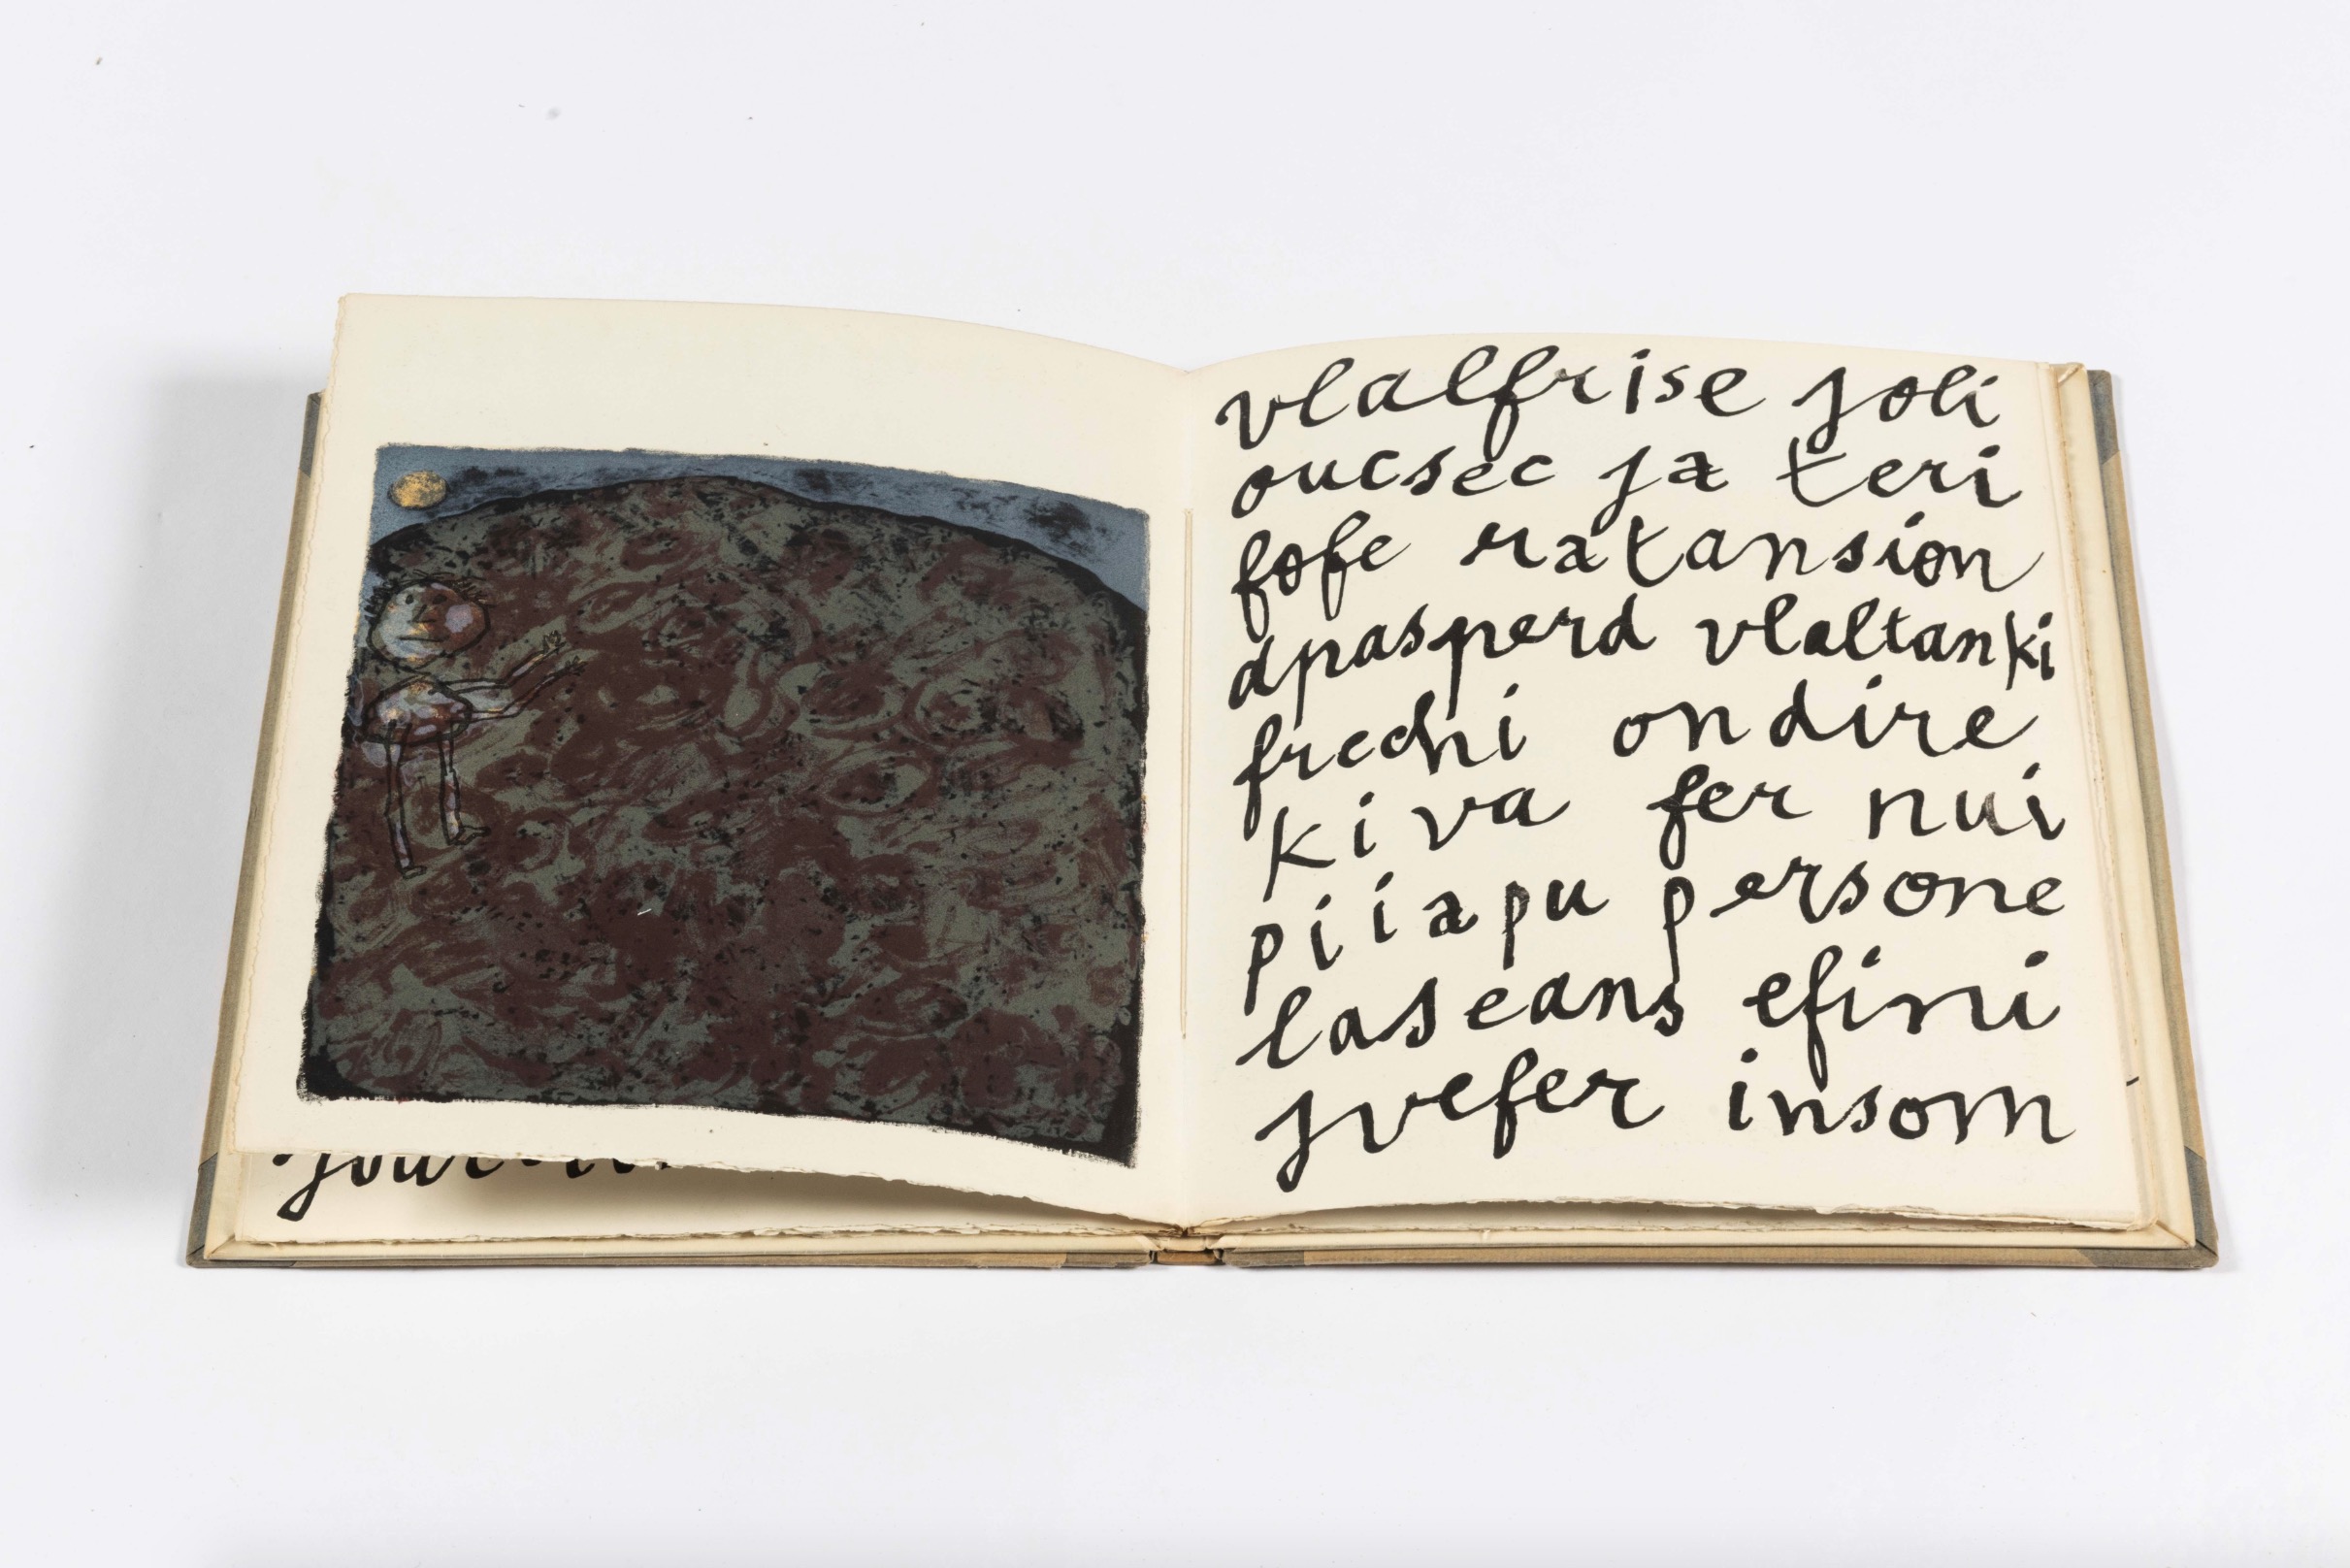 vlalfrise joli
oucsec ja teri
fofe ratansion
dpasperd vlaltanki
frechi ondire
kiva fer nui
piiapu persone
laseans efini
jvefer insom